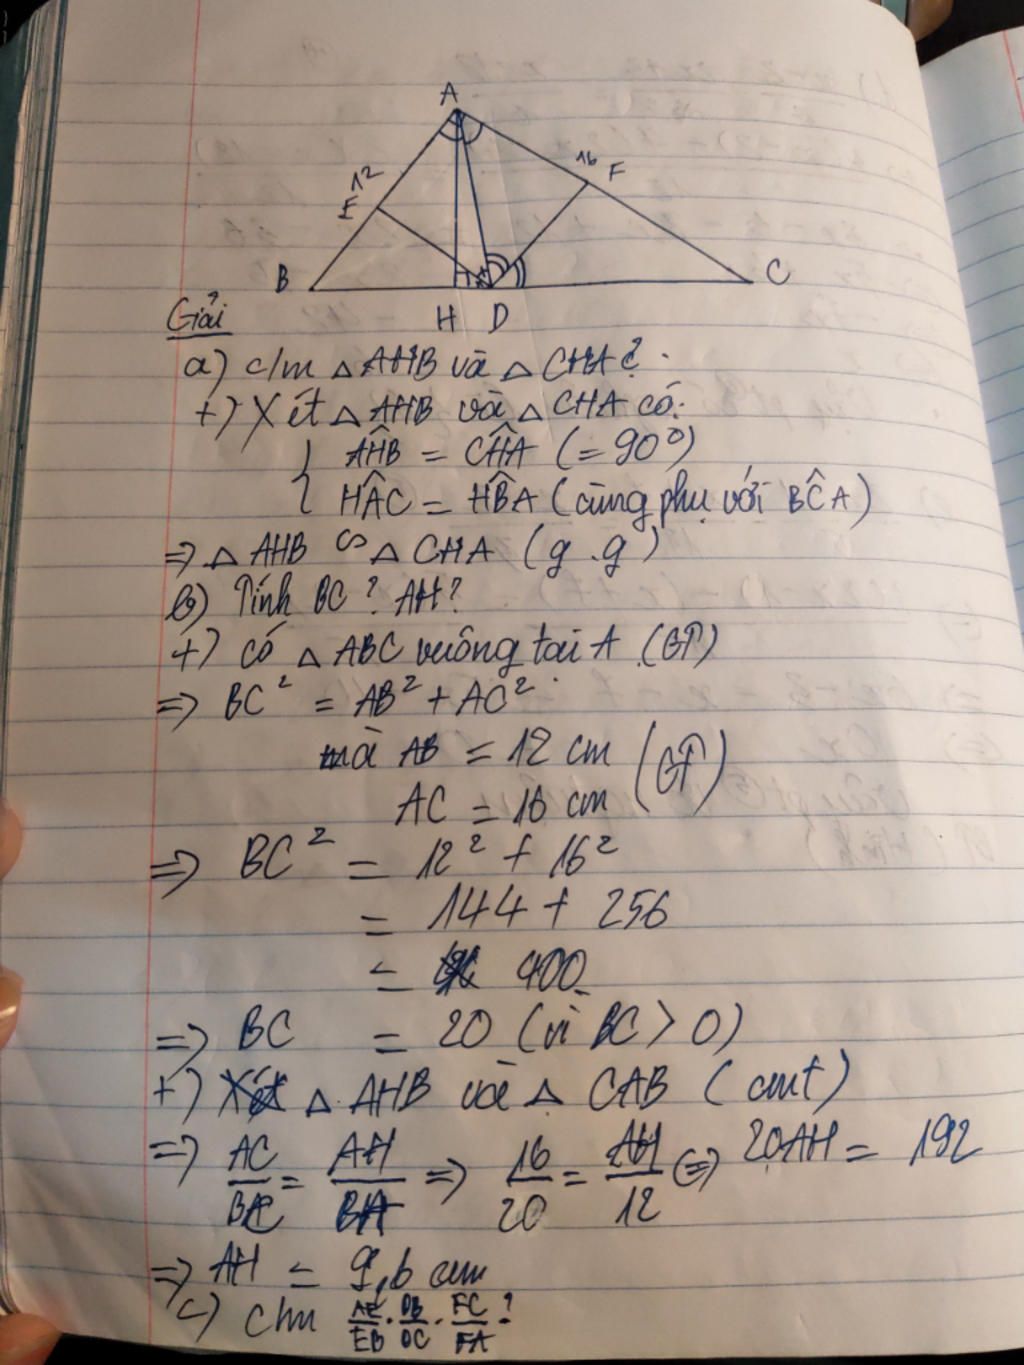 A
12
E
16
F
B
C
H D
Giải
a) c/m △ AHB và △ CHA ?
+) Xét △ AHB và △ CHA có:
{ AĤB = CĤA (= 90°)
HÂC = HB̂A (cùng phụ với BĈA)
=> △ AHB ∽ △ CHA (g.g)
b) Tính BC? AH?
+) có △ ABC vuông tại A (GT)
=> BC² = AB² + AC²
mà AB = 12 cm (GT)
AC = 16 cm
=> BC² = 12² + 16²
= 144 + 256
= 400
=> BC = 20 (vì BC > 0)
+) △ AHB và △ CAB (cmt)
=> AC/BC = AH/BA => 16/20 = AH/12 <=> 20AH = 192
=> AH = 9,6 cm
c) c/m AE/EB . DB/DC . FC/FA ?